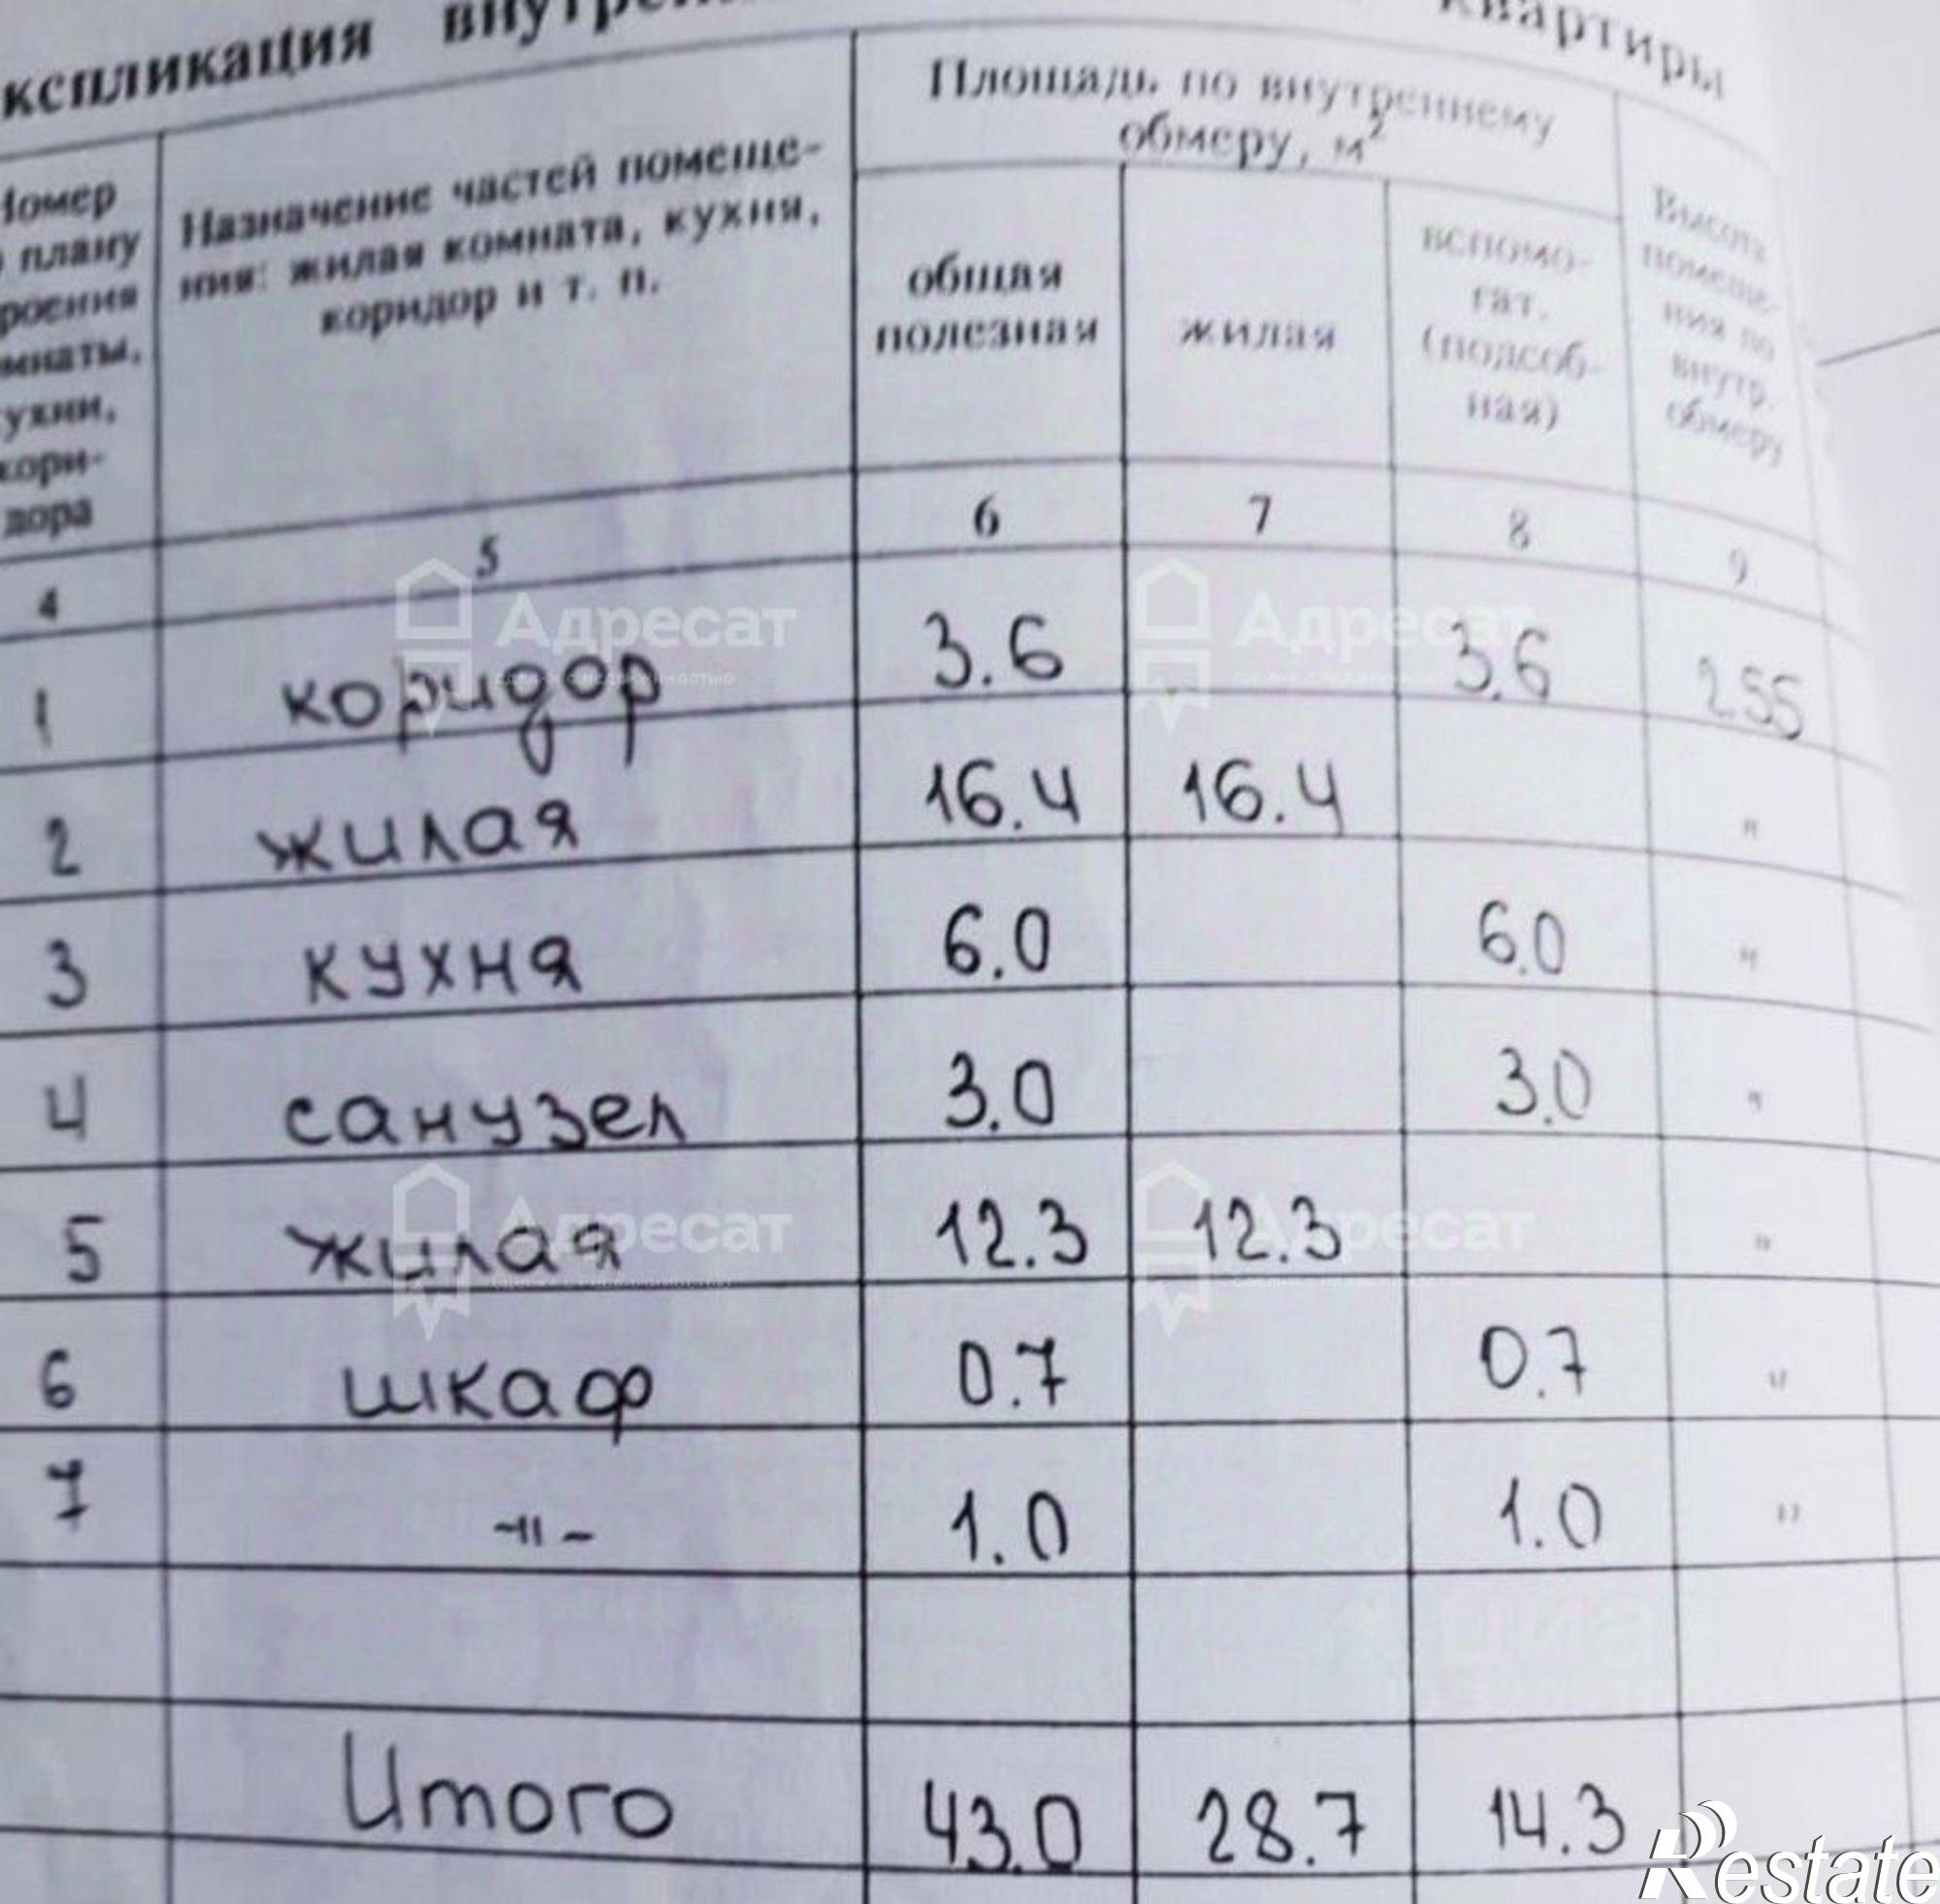 кспликация внутрен квартиры
Площадь по внутреннему
обмеру, м²
Номер
плану
роения
мнаты,
ухни,
кори-
дора
Назначение частей помеще-
ния: жилая комната, кухня,
коридор и т. п.
общая
полезная
жилая
вспомо-
гат.
(подсоб-
ная)
Высота
помеще-
ния по
внутр.
обмеру
4 5 6 7 8 9
1 коридор 3.6 3.6 2.55
2 жилая 16.4 16.4 "
3 кухня 6.0 6.0 "
4 санузел 3.0 3.0 "
5 жилая 12.3 12.3 "
6 шкаф 0.7 0.7 "
7 -"- 1.0 1.0 "
Итого 43.0 28.7 14.3
Адресат
Адресат
Адресат
Адресат
Restate